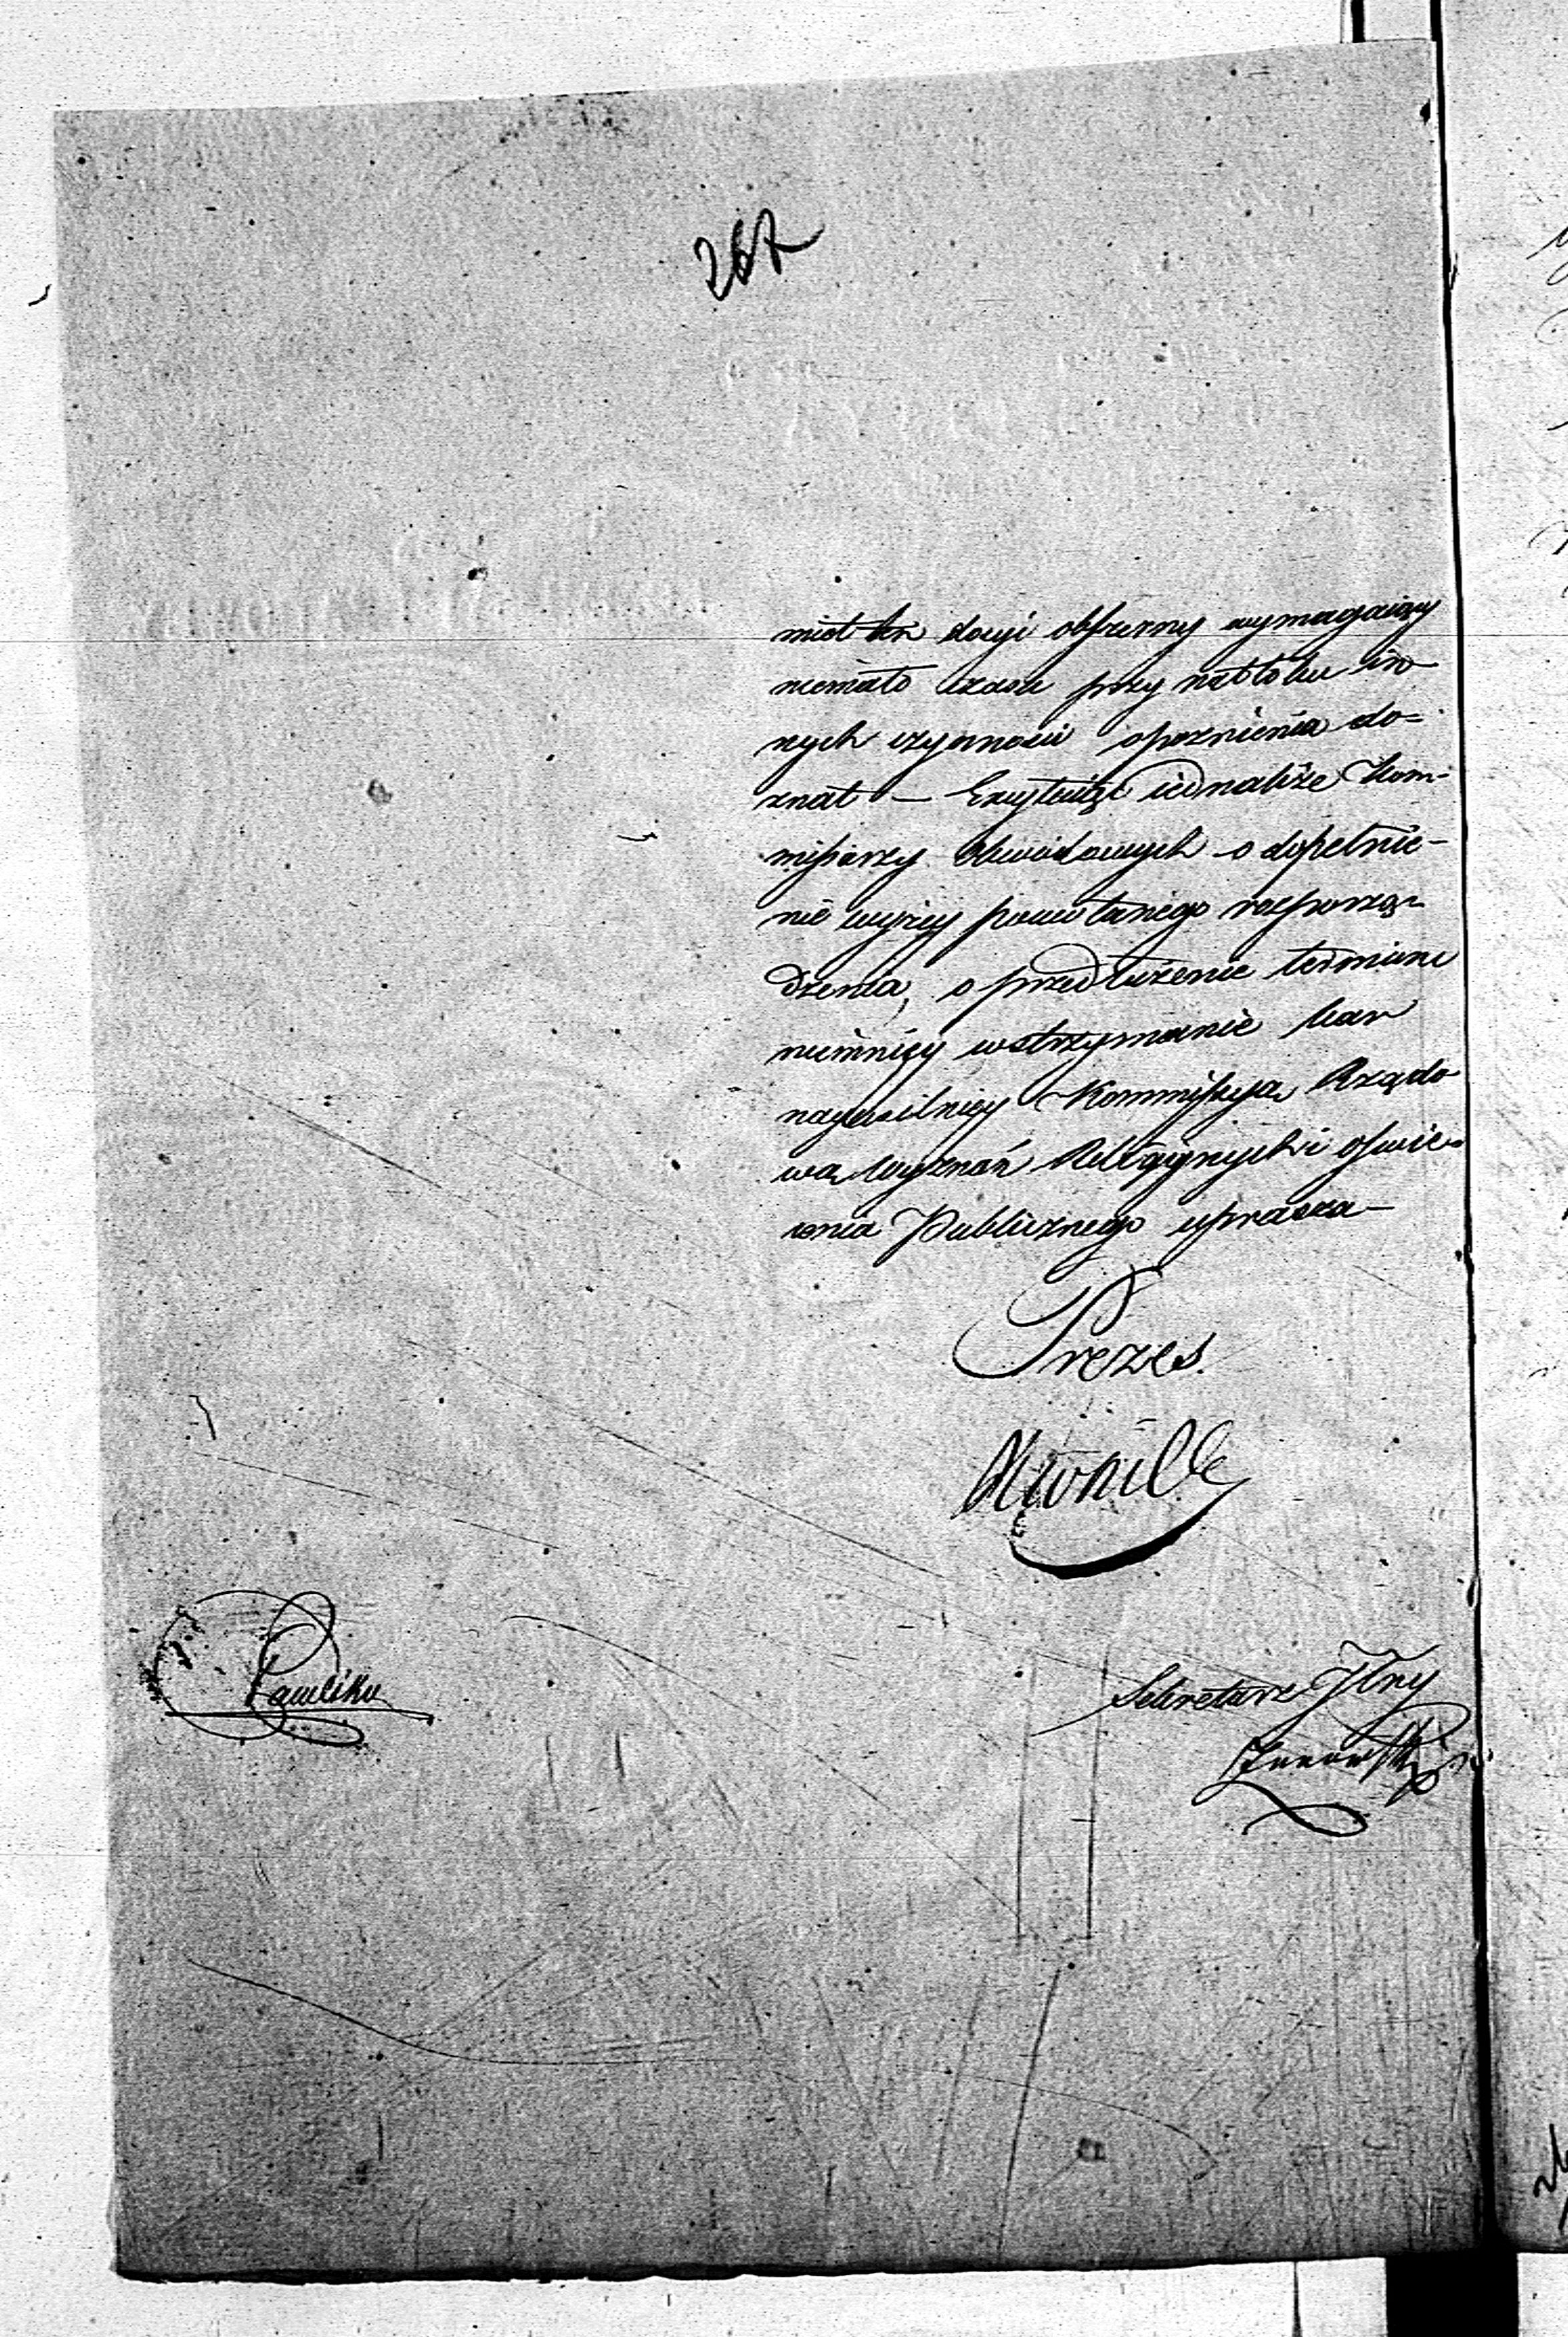 267
miot ten dosyć obszerny wymagaiący
niemało czasu przy natłoku in-
nych czynności opoznienia do=
znał — Excytuiąc iednakże Kom-
missarzy Obwodowych o dopełnie-
nie wyżey powołanego rozporzą-
dzenia, o przedłużenie terminu
niemniey wstrzymanie kar
nayusilniey Kommissya Rządo
wą Wyznań Religiynych i Oświe-
cenia Publicznego uprasza—
Prezes
Pawlikow
Sekretarz Jlny